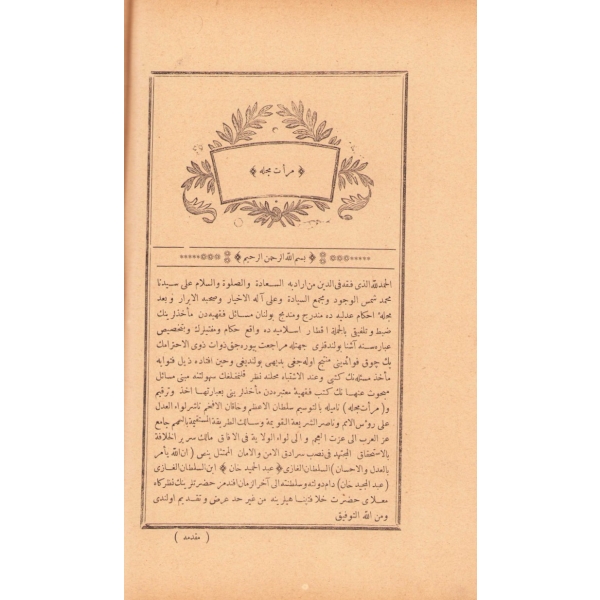 ﴿ مرآت مجله ﴾
﴿ بسم الله الرحمن الرحيم ﴾
الحمدلله الذى فقه فى الدين من اراد به السعادة والصلوة والسلام على سيدنا
محمد شمس الوجود ومجمع السيادة وعلى آله الاخيار وصحبه الابرار وبعد
مجلهٔ احكام عدليه ده مندرج ومندمج بولنان مسائل فقهيه دن مأخذلرينك
ضبط وتلفيق بالجملة اقطار اسلاميه ده واقع حكام ومفتيلرك وبالتخصيص
عباره سنه آشنا بولندقلرى جهتله مراجعت بيوره جق ذوات ذوى الاحترامك
بك چوق فوائدينى منتج اوله جغى بديهى بولنديغى وحين افتاده ذيل فتوايه
مأخذ مسئله نك كتبى وعند الاشتباه محلنه نظر قلنمقلغك سهولتنه مبنى مسائل
مبحوث عنهانك كتب فقهيهٔ معتبره دن مأخذلرينى بعبارتها اخذ وترقيم
و ( مرآت مجله ) ناميله بالتوسيم سلطان الاعظم وخاقان الافخم ناشر لواء العدل
على رؤس الامم وناصر الشريعة القويمة وسالك الطريقة المستقيمة بالسهم جامع
عز العرب الى عزت العجم و الى لواء الولاية فى الافاق مالك سرير الخلافة
بالاستحقاق المجتهد فى نصب سرادق الامن والامان الممتثل بنص ( ان الله يأمر
بالعدل والاحسان ) السلطان الغازى ﴿ عبد الحميد خان ﴾ ابن السلطان الغازى
( عبد المجيد خان ) دام دولته وسلطنته الى آخر الزمان افندمز حضرتلرينك نظركاه
معلاى حضرت خلافتپناهيلرينه من غير حد عرض وتقديم اولندى
ومن الله التوفيق
( مقدمه )